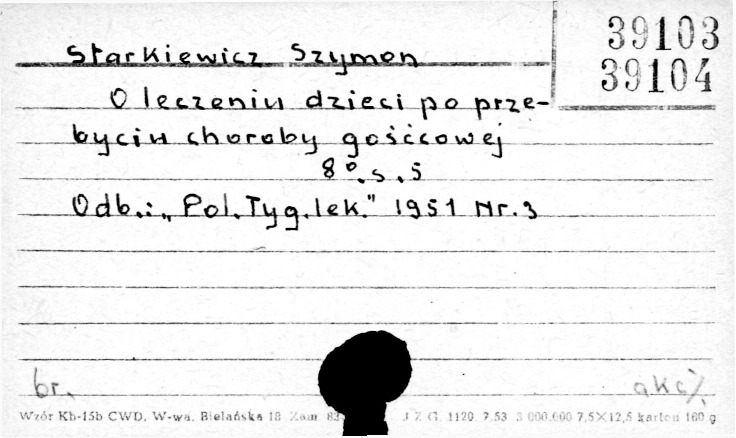 Starkiewicz Szymon
39103
39104
O leczeniu dzieci po prze-
byciu choroby gośćcowej
8°. s. 5
Odb.: „Pol. Tyg. lek." 1951 Nr. 3
br.
Wzór Kb-15b CWD, W-wa, Bielańska 18 Zam. J Z G. 1120 7.53 3 000.000 7,5×12,5 karton 160 g